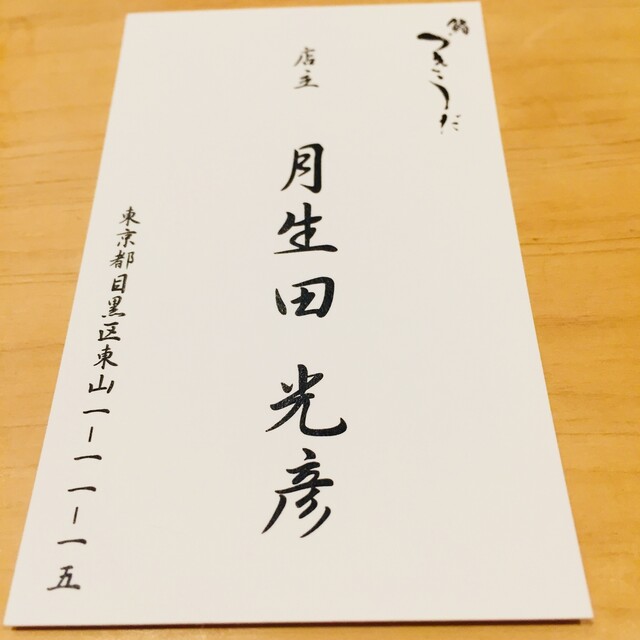 鮨 つきうだ
店主
月生田 光彦
東京都目黒区東山一ー一一ー一五